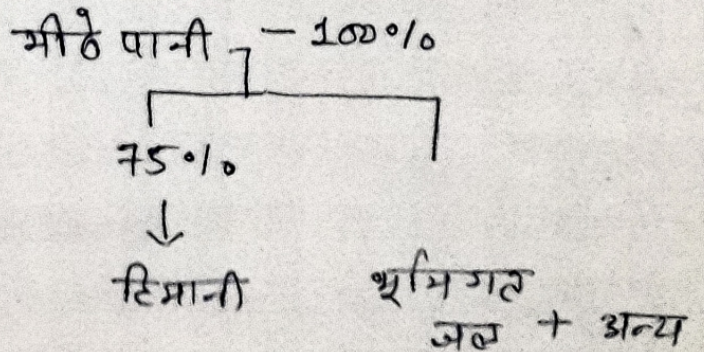 मीठे पानी - 100%
75%
हिमानी
भूमिगत
जल + अन्य